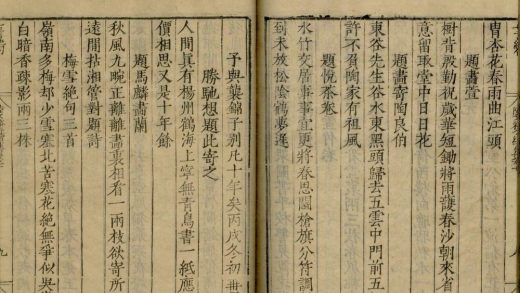 曺杏花春雨曲江頭
題畫萱
樹背殷勤祝歲華短鋤將雨護春沙朝來省
意留取堂中日日花
題畫寄陶良伯
東谷先生谷水東黑頭歸去五雲中門前五
許不負陶家有祖風
題悅茶卷
水竹交居事事宜更將春思闘槍旗分符調
到未放松陰鶴夢遲
予與龔錦子別凡十年矣丙戌冬初
勝馳想題此寄之
人間真有楊州鶴海上寧無青鳥書一紙應
價相思又是十年餘
題馬麟畫蘭
秋風九畹正離離畫裏相看一兩枝欲寄所
遠閒拈湘管對頋詩
梅雪絶句三首
嶺南多梅却少雪塞北苦寒花絶無爭似吳
白暗香疎影兩三株
九